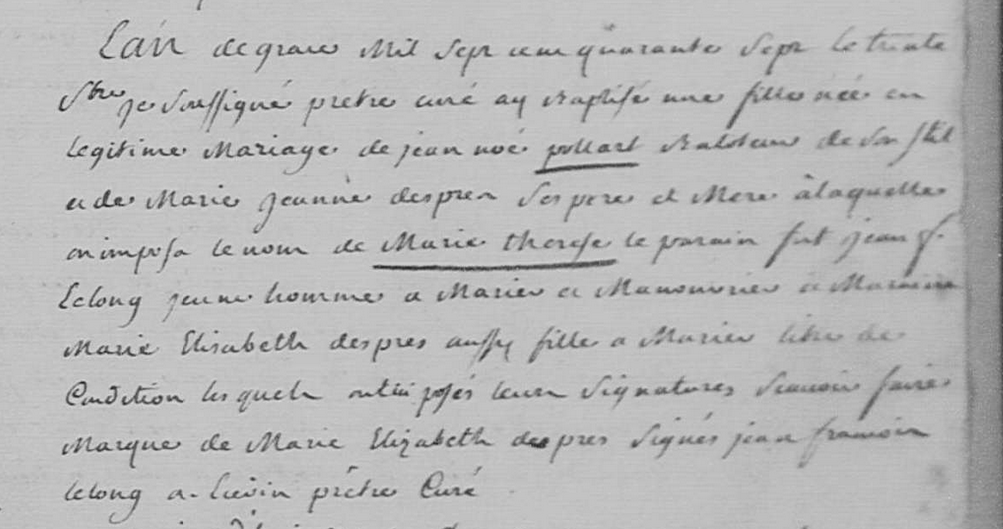 Lan de grace Mil Sept cent quarante Sept le trente
je Soussigné pretre curé ay Baptisé une fille née en
legitime Mariage de jean noé pollart de Son
et de Marie jeanne despres Ses pere et Mere a laquelle
on imposa le nom de Marie therese le parain fut jean f.
Lelong jeune homme a Marier et Manouvrier et Maraine
Marie Elisabeth despres aussy fille a Marier libre de
Condition lesquels ont posés leurs Signatures Scavoir faire
Marque de Marie Elizabeth despres Signés jean francois
lelong a. Lievin prêtre Curé